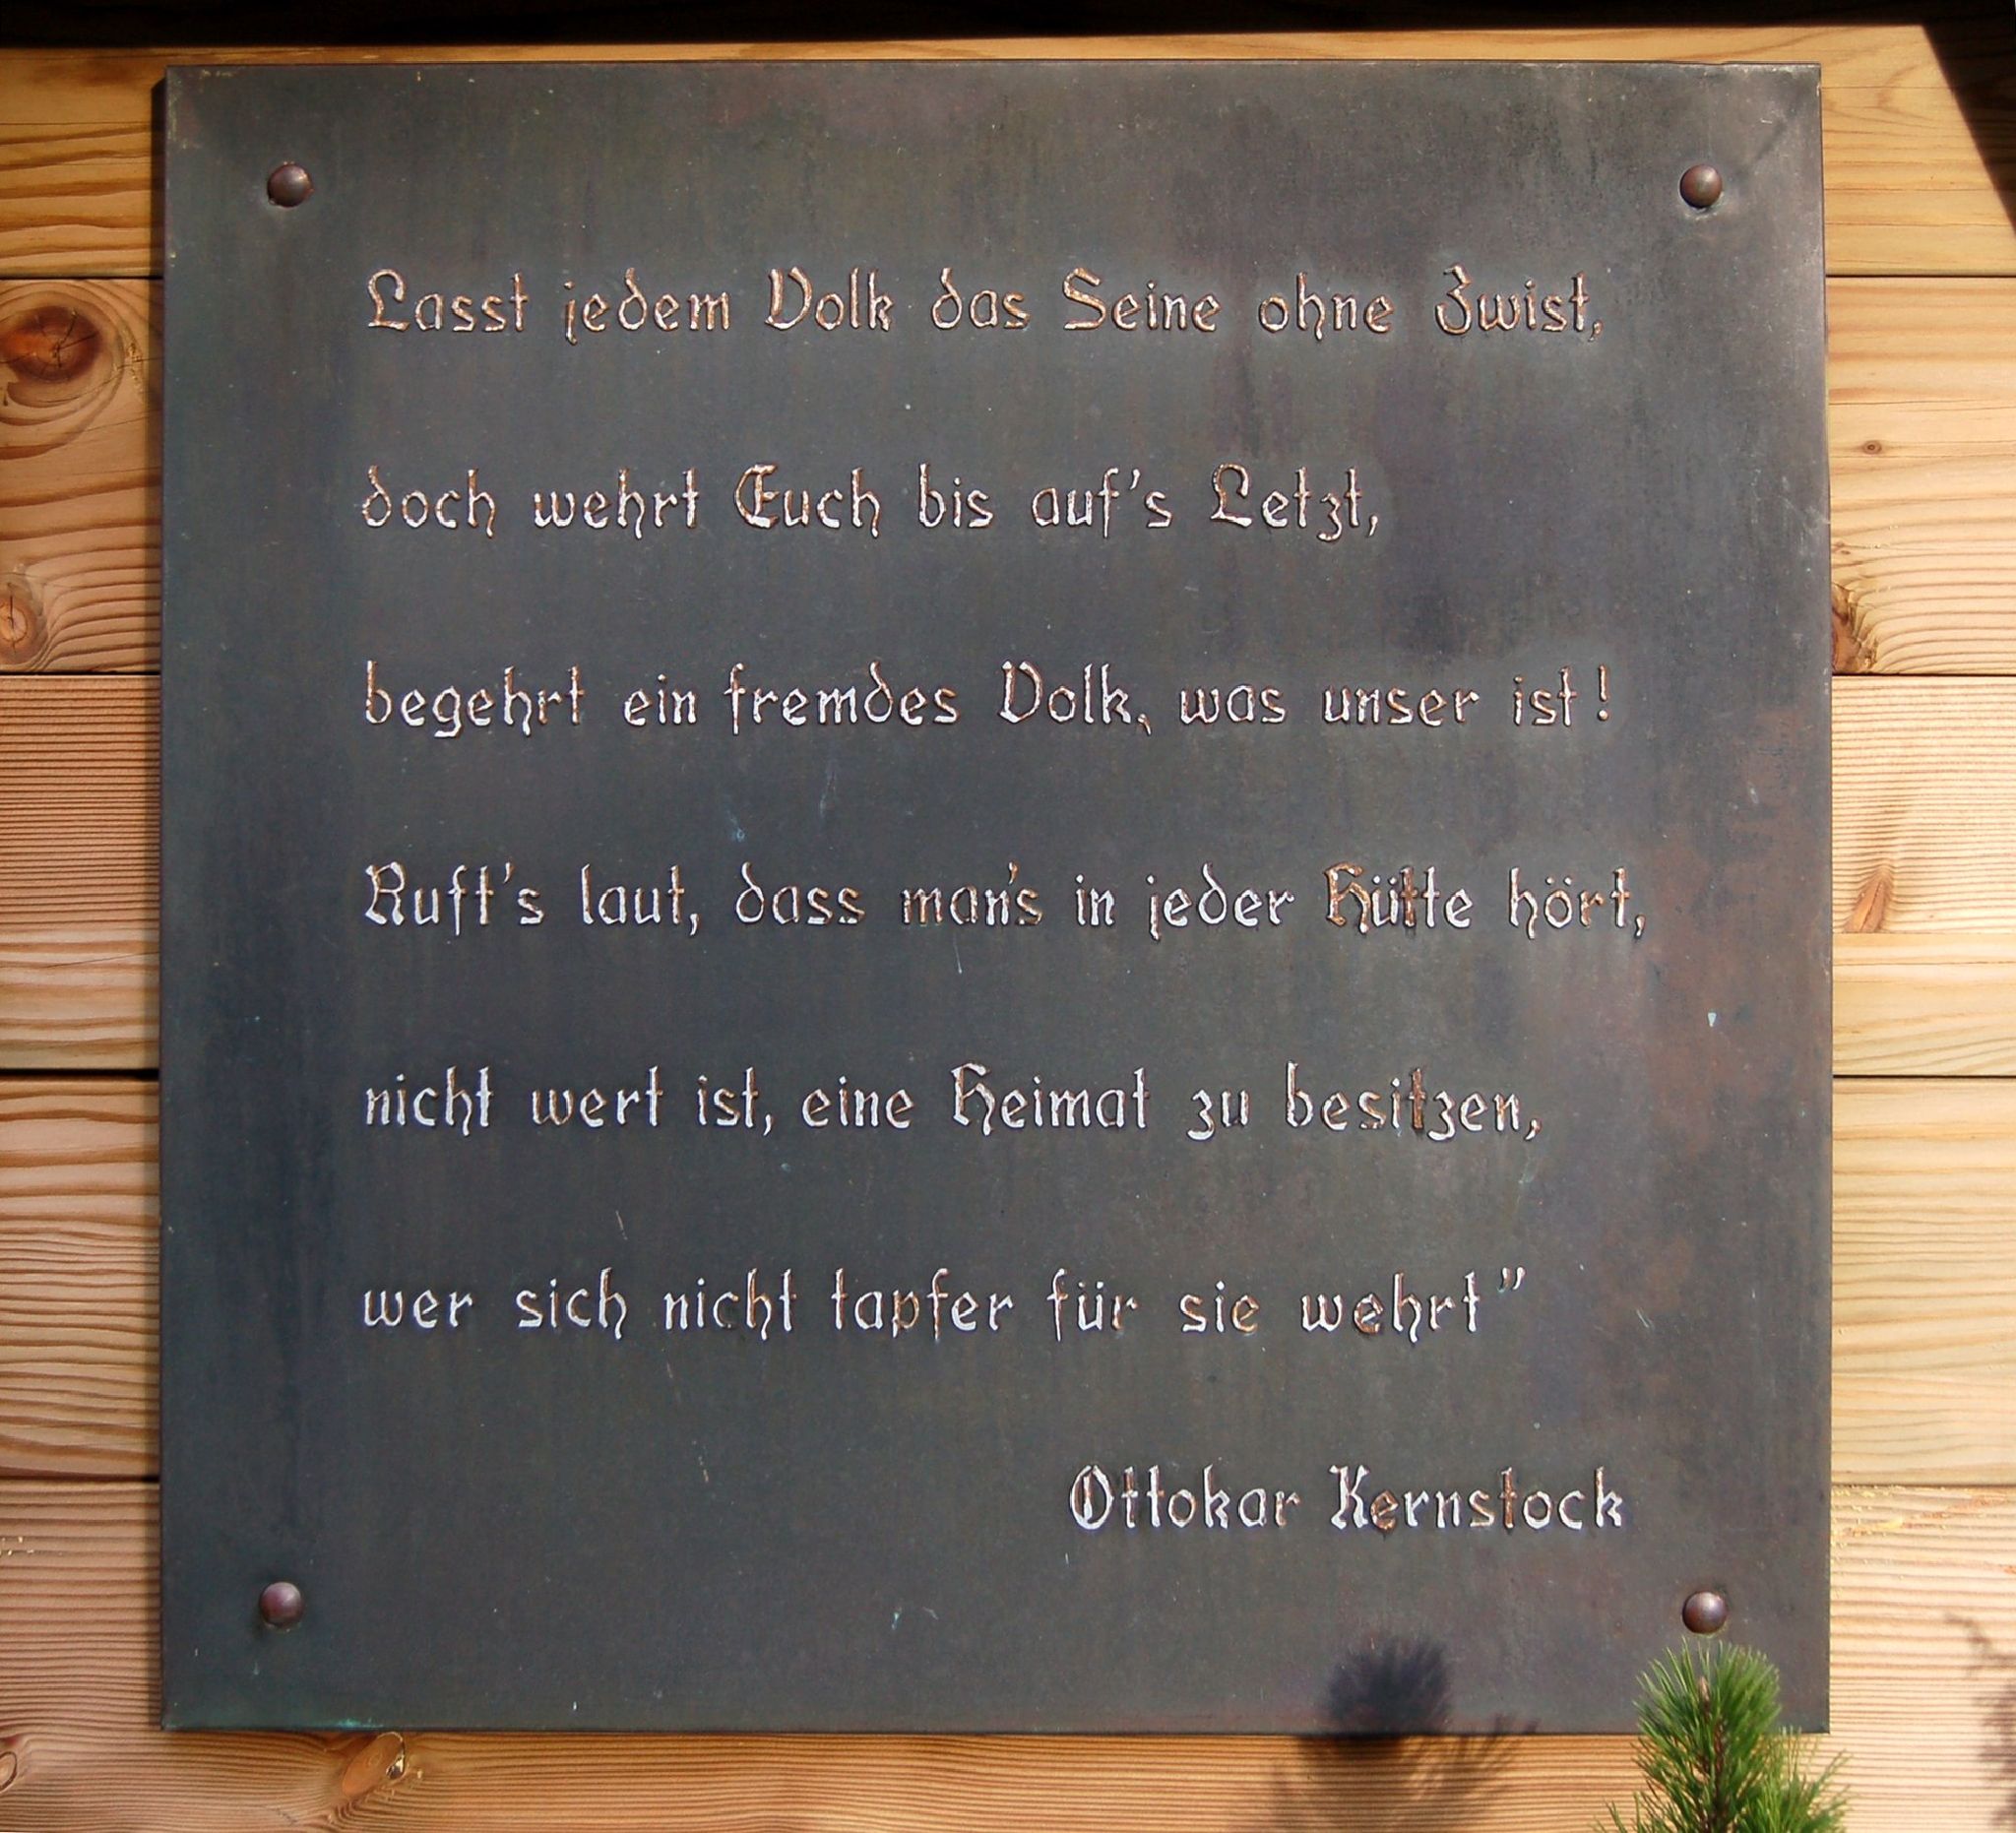 Lasst jedem Volk das Seine ohne Zwist,
doch wehrt Euch bis auf's Letzt,
begehrt ein fremdes Volk, was unser ist!
Ruft's laut, dass man's in jeder Hütte hört,
nicht wert ist, eine Heimat zu besitzen,
wer sich nicht tapfer für sie wehrt"
Ottokar Kernstock